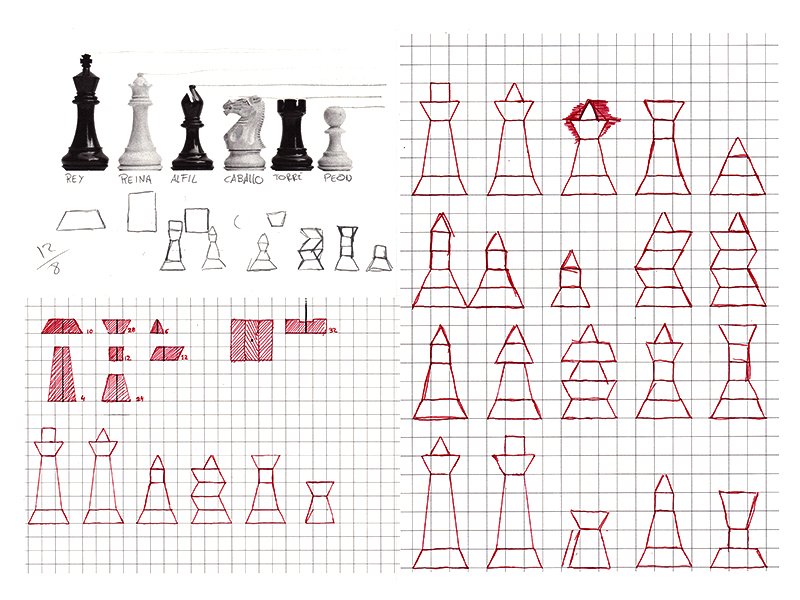 REY REINA ALFIL CABALLO TORRE PEON
12/8
10 28 6 32
12 12
4 24